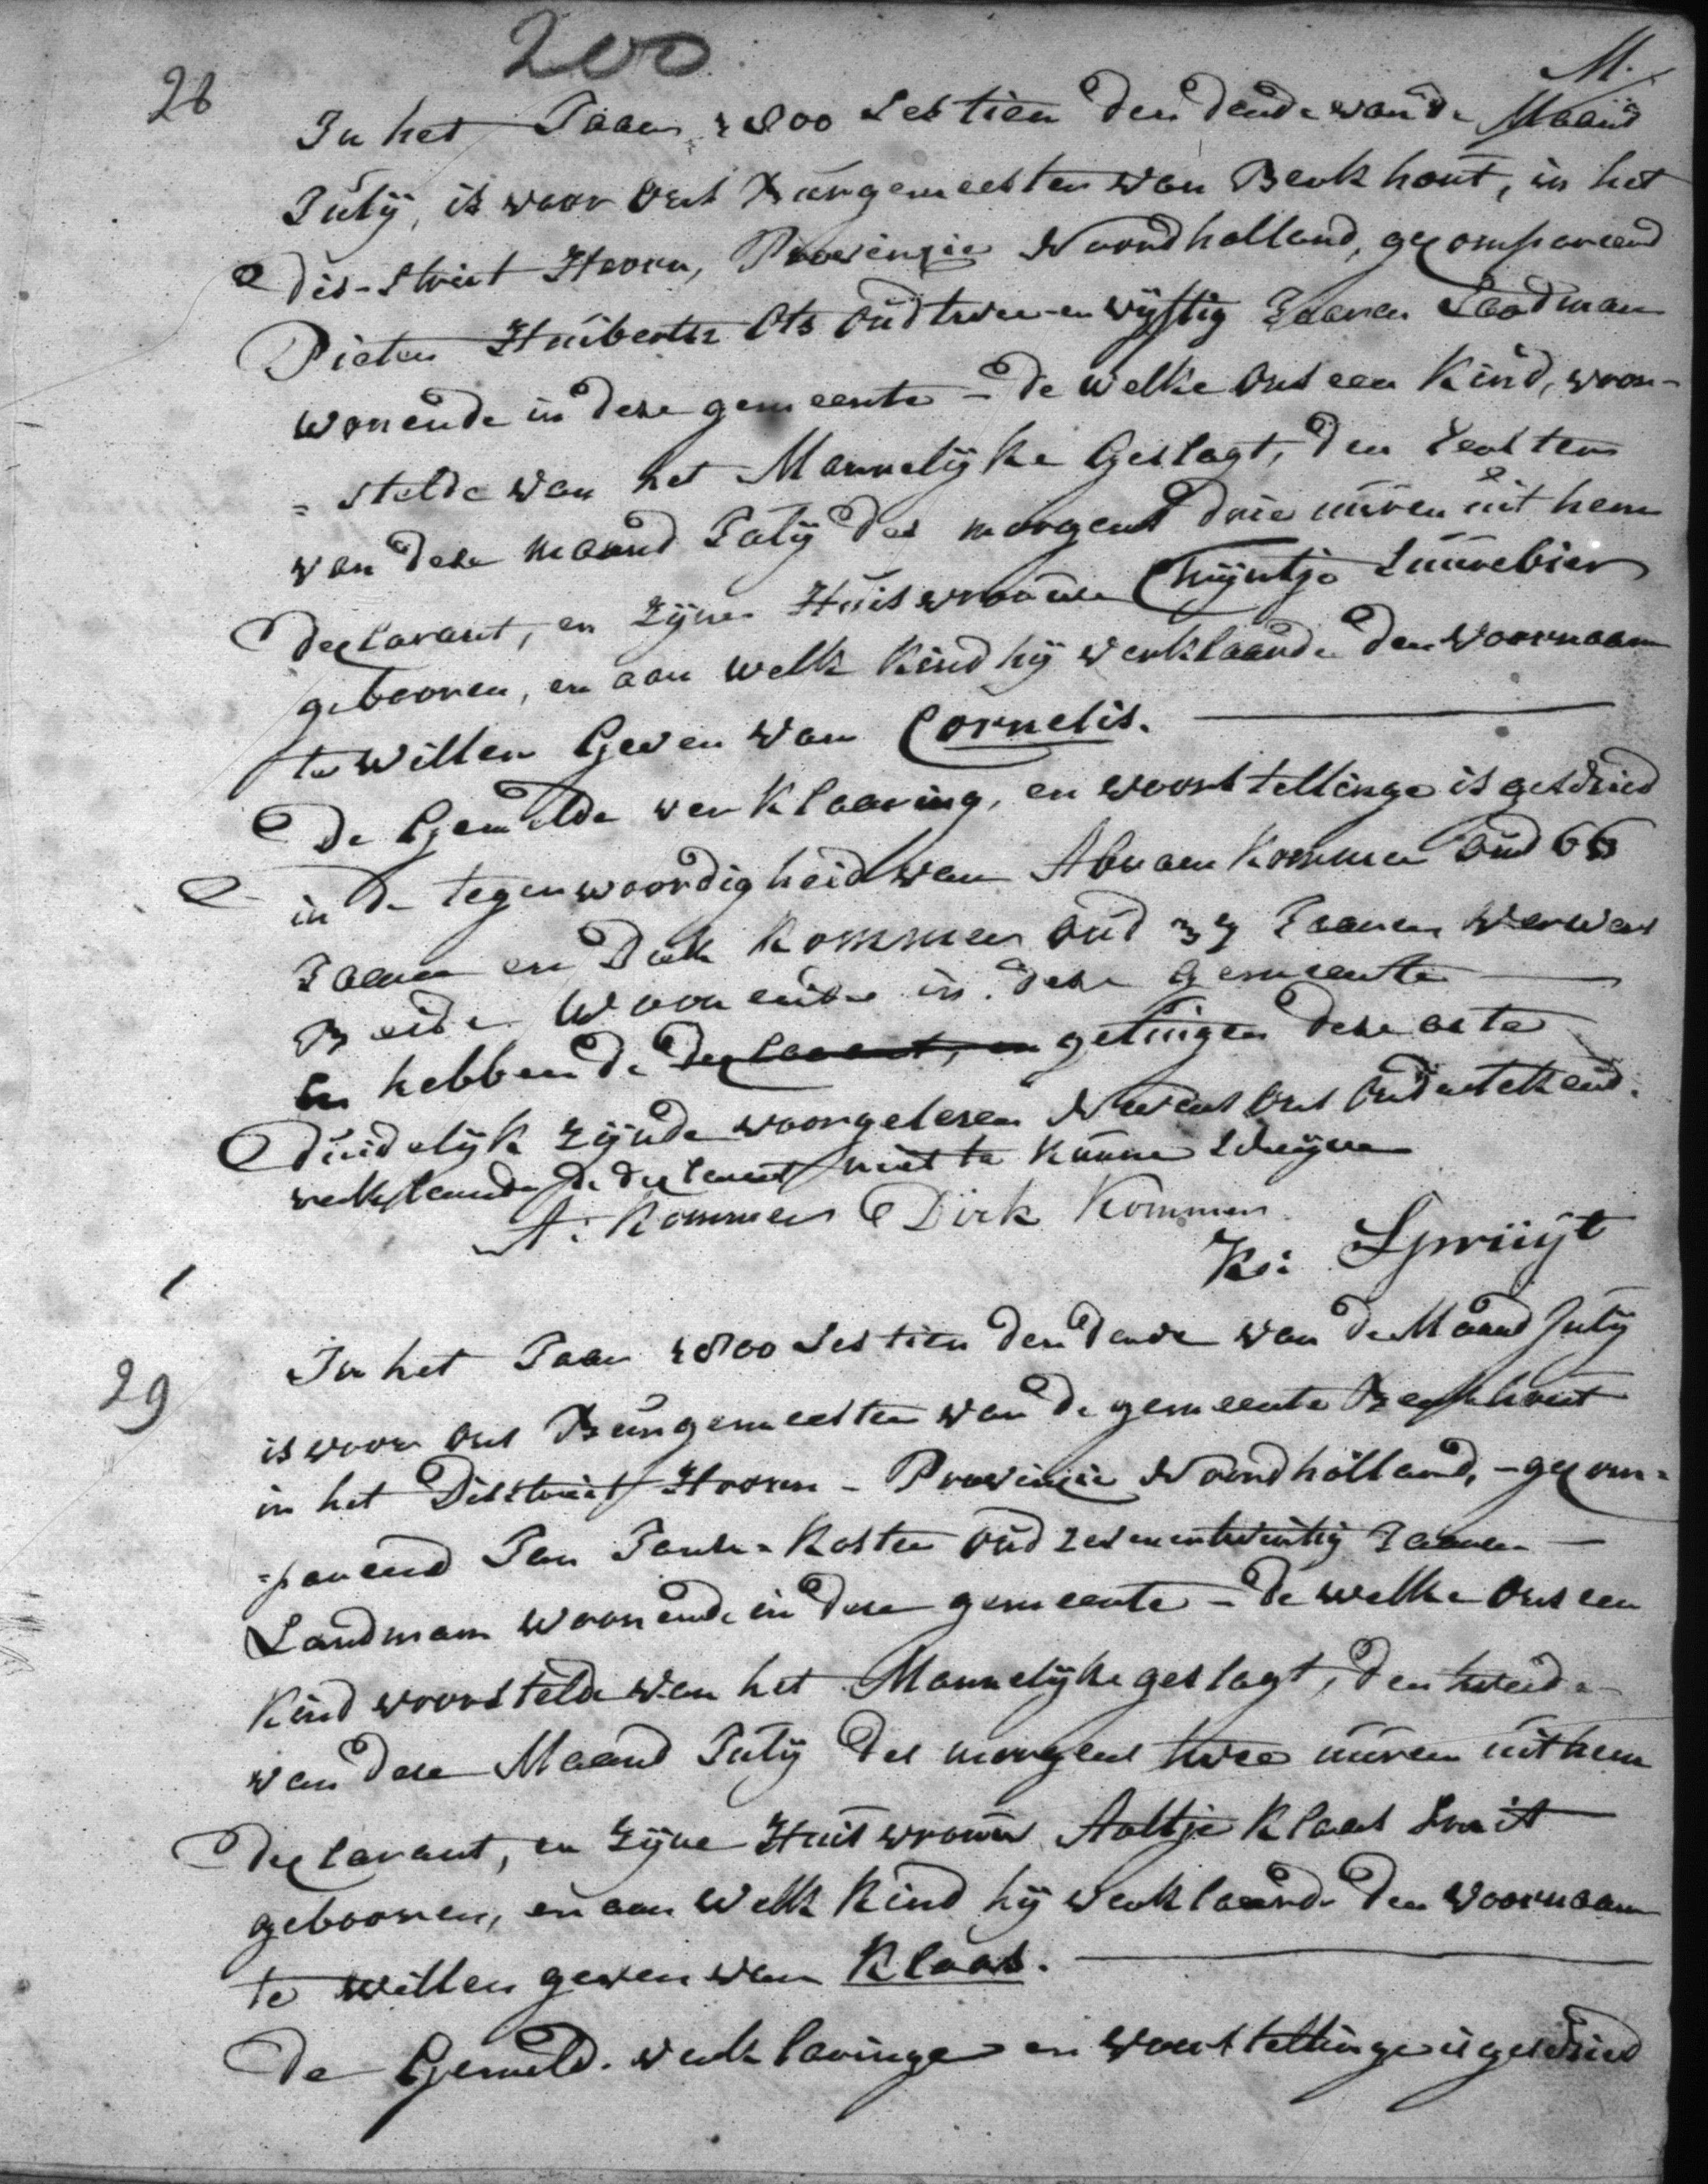 200
M.
28
In het Jaar 1800 Sestien den derde van de Maand
July, is voor ons Burgemeester van Berkhout, in het
Dis-strict Hoorn, Provinçie Noordholland, geçompareerd
Pieter Huiberts Ots Oud twee-en vyftig Jaaren Landman
wonende in deze gemeente - de welke ons een Kind, voor-
= stelde van het Mannelyke Geslagt, den Eersten
van deze maand July des morgens drie uüren uit hem
Declarant, en Zyne Huisvrouwe Thryntje Suürebier
gebooren, en aan welk Kind hy verklaarde den Voornaam
te willen Geven van Cornelis.
De Gemelde verklaaring, en voorstellinge is geschied
in de tegenwoordigheid van Abram Kommer Oud 66
Jaaren en Dirk Kommer Oud 37 Jaaren
Beide Woonende in deze gemeente
En hebben de Declarant, en getuigen deze acte
duidelyk zynde voorgelesen Nevens Ons Onderteekend.
verklaarde de declarant niet te kunnen Schryven
A: Kommer Dirk Kommer
Ks: Spruijt
29
In het Jaar 1800 Sestien den derde van de Maand July
is voor ons Burgemeester van de gemeente Berkhout
in het Disstrict Hoorn - Provinçie Noordholland, - geçom=
=pareerd Jan Jansz Koster Oud zevenentwintig Jaaren
Landman woonende in deze gemeente - de welke Ons een
Kind voorstelde van het Mannelyke geslagt, den tweede
van deze Maand July des morgens twee uüren uit hem
Declarant, en Zyne Huisvrouw Aaltje Klaas Smit
gebooren, en aan welk Kind hy verklaarde den voornaam
te willen geven van Klaas.
De Gemelde verklaringe en voorstellinge is geschied